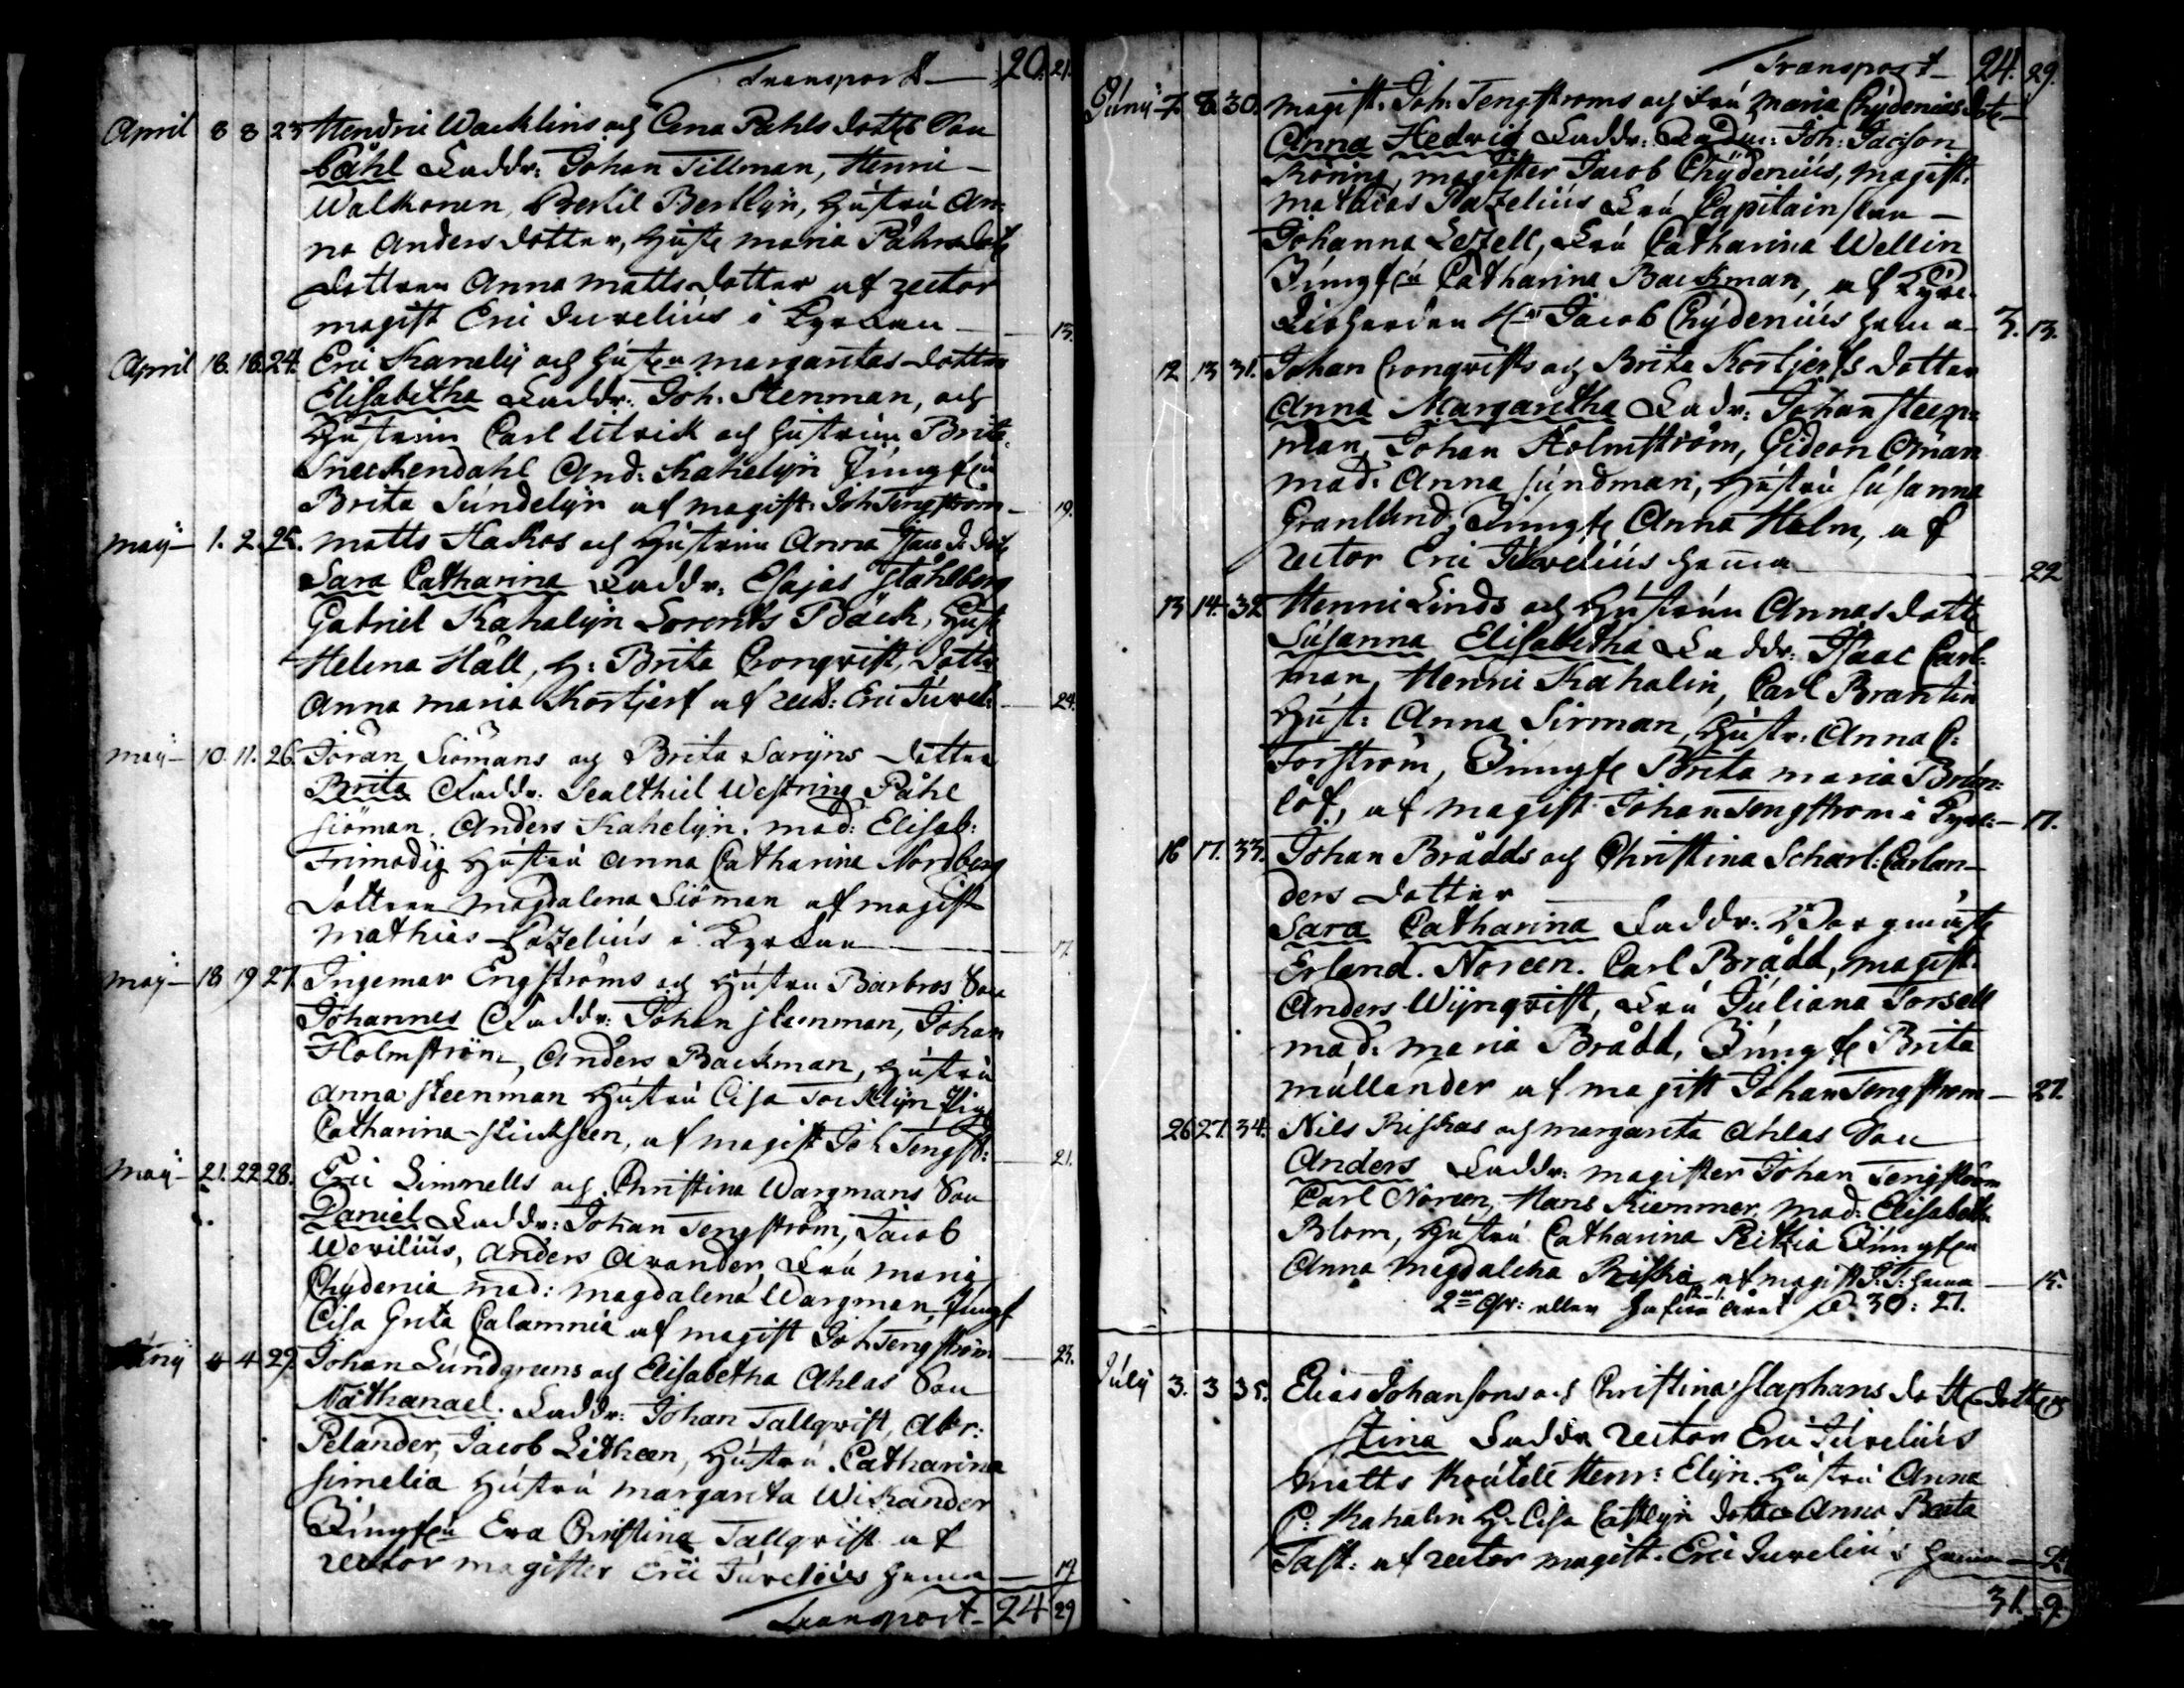 Transport — 20. 21.
April 8 8 23 Hendric Wacklins och Cena Påhls dotts Son
Påhl Faddr: Johan Tillman, Henric
Walkonen, Bertil Bertlÿn, Hústrú An-
na Anders dotter, Húst: Maria Påhrsdott
dottren Anna Matts dotter af rector
magist Eric Juvelius i Kyrkan — 13.
April 18. 18. 24. Eric Kanely och hústru margaretas dotter
Elisabetha Faddr: Joh: Stenman, och
Hústrún Carl Ulrick och hústrún Brita
Sneckendahl And: Kahelÿn Júngfru
Brita Súndelÿn af magist: Joh Tengström — 19.
Maij — 1. 2. 25. Matts Kackos och Hústrún Anna
Sara Catharina Faddr. Esajas Ståhlberg
Gabriel Kahalÿn Lorents Bäck, Húst
Helena Häll, H: Brita Cronqvist, dottr
Anna Maria Kortjerf af rect: Eric Júvel: — 24.
Maij — 10. 11. 26. Jöran Siömans och Brita Sarÿns dotter
Brita Faddr. Sealthiel Westring Påhl
Siöman. Anders Kahelÿn. Mad: Elisab:
Frimodig Hústrú Anna Catharina Nordberg
dottren Magdalena Siöman af magist
Mathias Pazelius i Kyrkan — 17.
Maij — 18 19 27. Ingemar Engströms och Hústru Barbros Son
Johannes Faddr: Johan Stenman, Johan
Holmström, Anders Backman, Hústrú
Anna Steenman Hústrú Cisa Tocklÿn Pig
Catharina Stickseen, af magist Joh Tengst: — 21.
Maij — 21. 22. 28. Eric Limnells och Christina Wargmans Son
Daniel Faddr: Johan Tengström, Jacob
Weviliús, Anders Avander, Frú Maria
Chÿdenia Mad: Magdalena Wargman, Júngf
Cisa Greta Calamnia af magist Joh Tengström — 23.
Júnij 4 4 29. Johan Lúndgrens och Elisabetha Ahlas Son
Nathanael. Faddr: Johan Tallqvist, Abr:
Pelander, Jacob Litheen, Hústrú Catharina
Simelia Hústrú Margareta Wikander
Júngfru Eva Christina Tallqvist af
rector magister Eric Júveliús hema — 17
Transport — 24 29
Transport — 24. 29.
Júnij 7. 8. 30. Magist: Joh: Tengströms och Frú Maria Chÿdenias dott
Anna Hedvig Faddr: Joh: Jacson
Röring, Magister Jacob Chÿdeniús, Magist:
Mathias Pazeliús Frú Capitainskan
Johanna Lezell, Frú Catharina Wellin
Júngfrú Catharina Backman, af Kyrc-
kioherden Hr Jacob Chÿdeniús hema — 3. 13.
12 13 31. Johan Cronqvists och Brita Kortjerfs dotter
Anna Margaretha Fadr: Johan Steen-
man, Johan Holmström, Gideon Öman
Mad: Anna Súndman, Hústrú Súsanna
Granlund, Júngf Anna Holm, af
rector Eric Júveliús hema — 22
13 14. 32 Henric Linds och Hústrún Annas dott
Súsanna Elisabetha Faddr: Isaac Carl-
man, Henric Kahalin, Carl Brantin
Húst: Anna Sirman, Hústr: Anna C:
Forström, Júngf Brita Maria Brún-
löf, af magist Johan Tengstrom i Kyrc: — 17.
16 17. 33. Johan Brådds och Christina Scharl: Carlan-
ders dotter
Sara Catharina Faddr: Borgmäst
Erland Noreen. Carl Brådd, magist:
Anders Wijnqvist, Frú Júliana Torsell
Mad: Maria Brådd, Júngf Brita
Múllander af magist Johan Tengstrom — 27.
26 27. 34. Nils Riskas och Margareta Ahlas Son
Anders Faddr: magister Johan Tengström
Carl Noreen, Hans Kiemmer, Mad: Elisabeth
Blom, Hústrú Catharina Júngfru
Anna Magdalena Riska af magist J: T: hema — 15.
2dra Qv: eller halfva året 30: 27.
Júlij 3. 3 35. Elias Johansons och Christina Staphans dott dotter
Stina Faddr rector Eric Júveliús
Matts Henr: Elÿn. Hústrú Anna
C: Kahalin H: Cisa Castlÿn dotter Anna Beata
Tast: af rector magist. Eric Juveliús hema
31. 9.